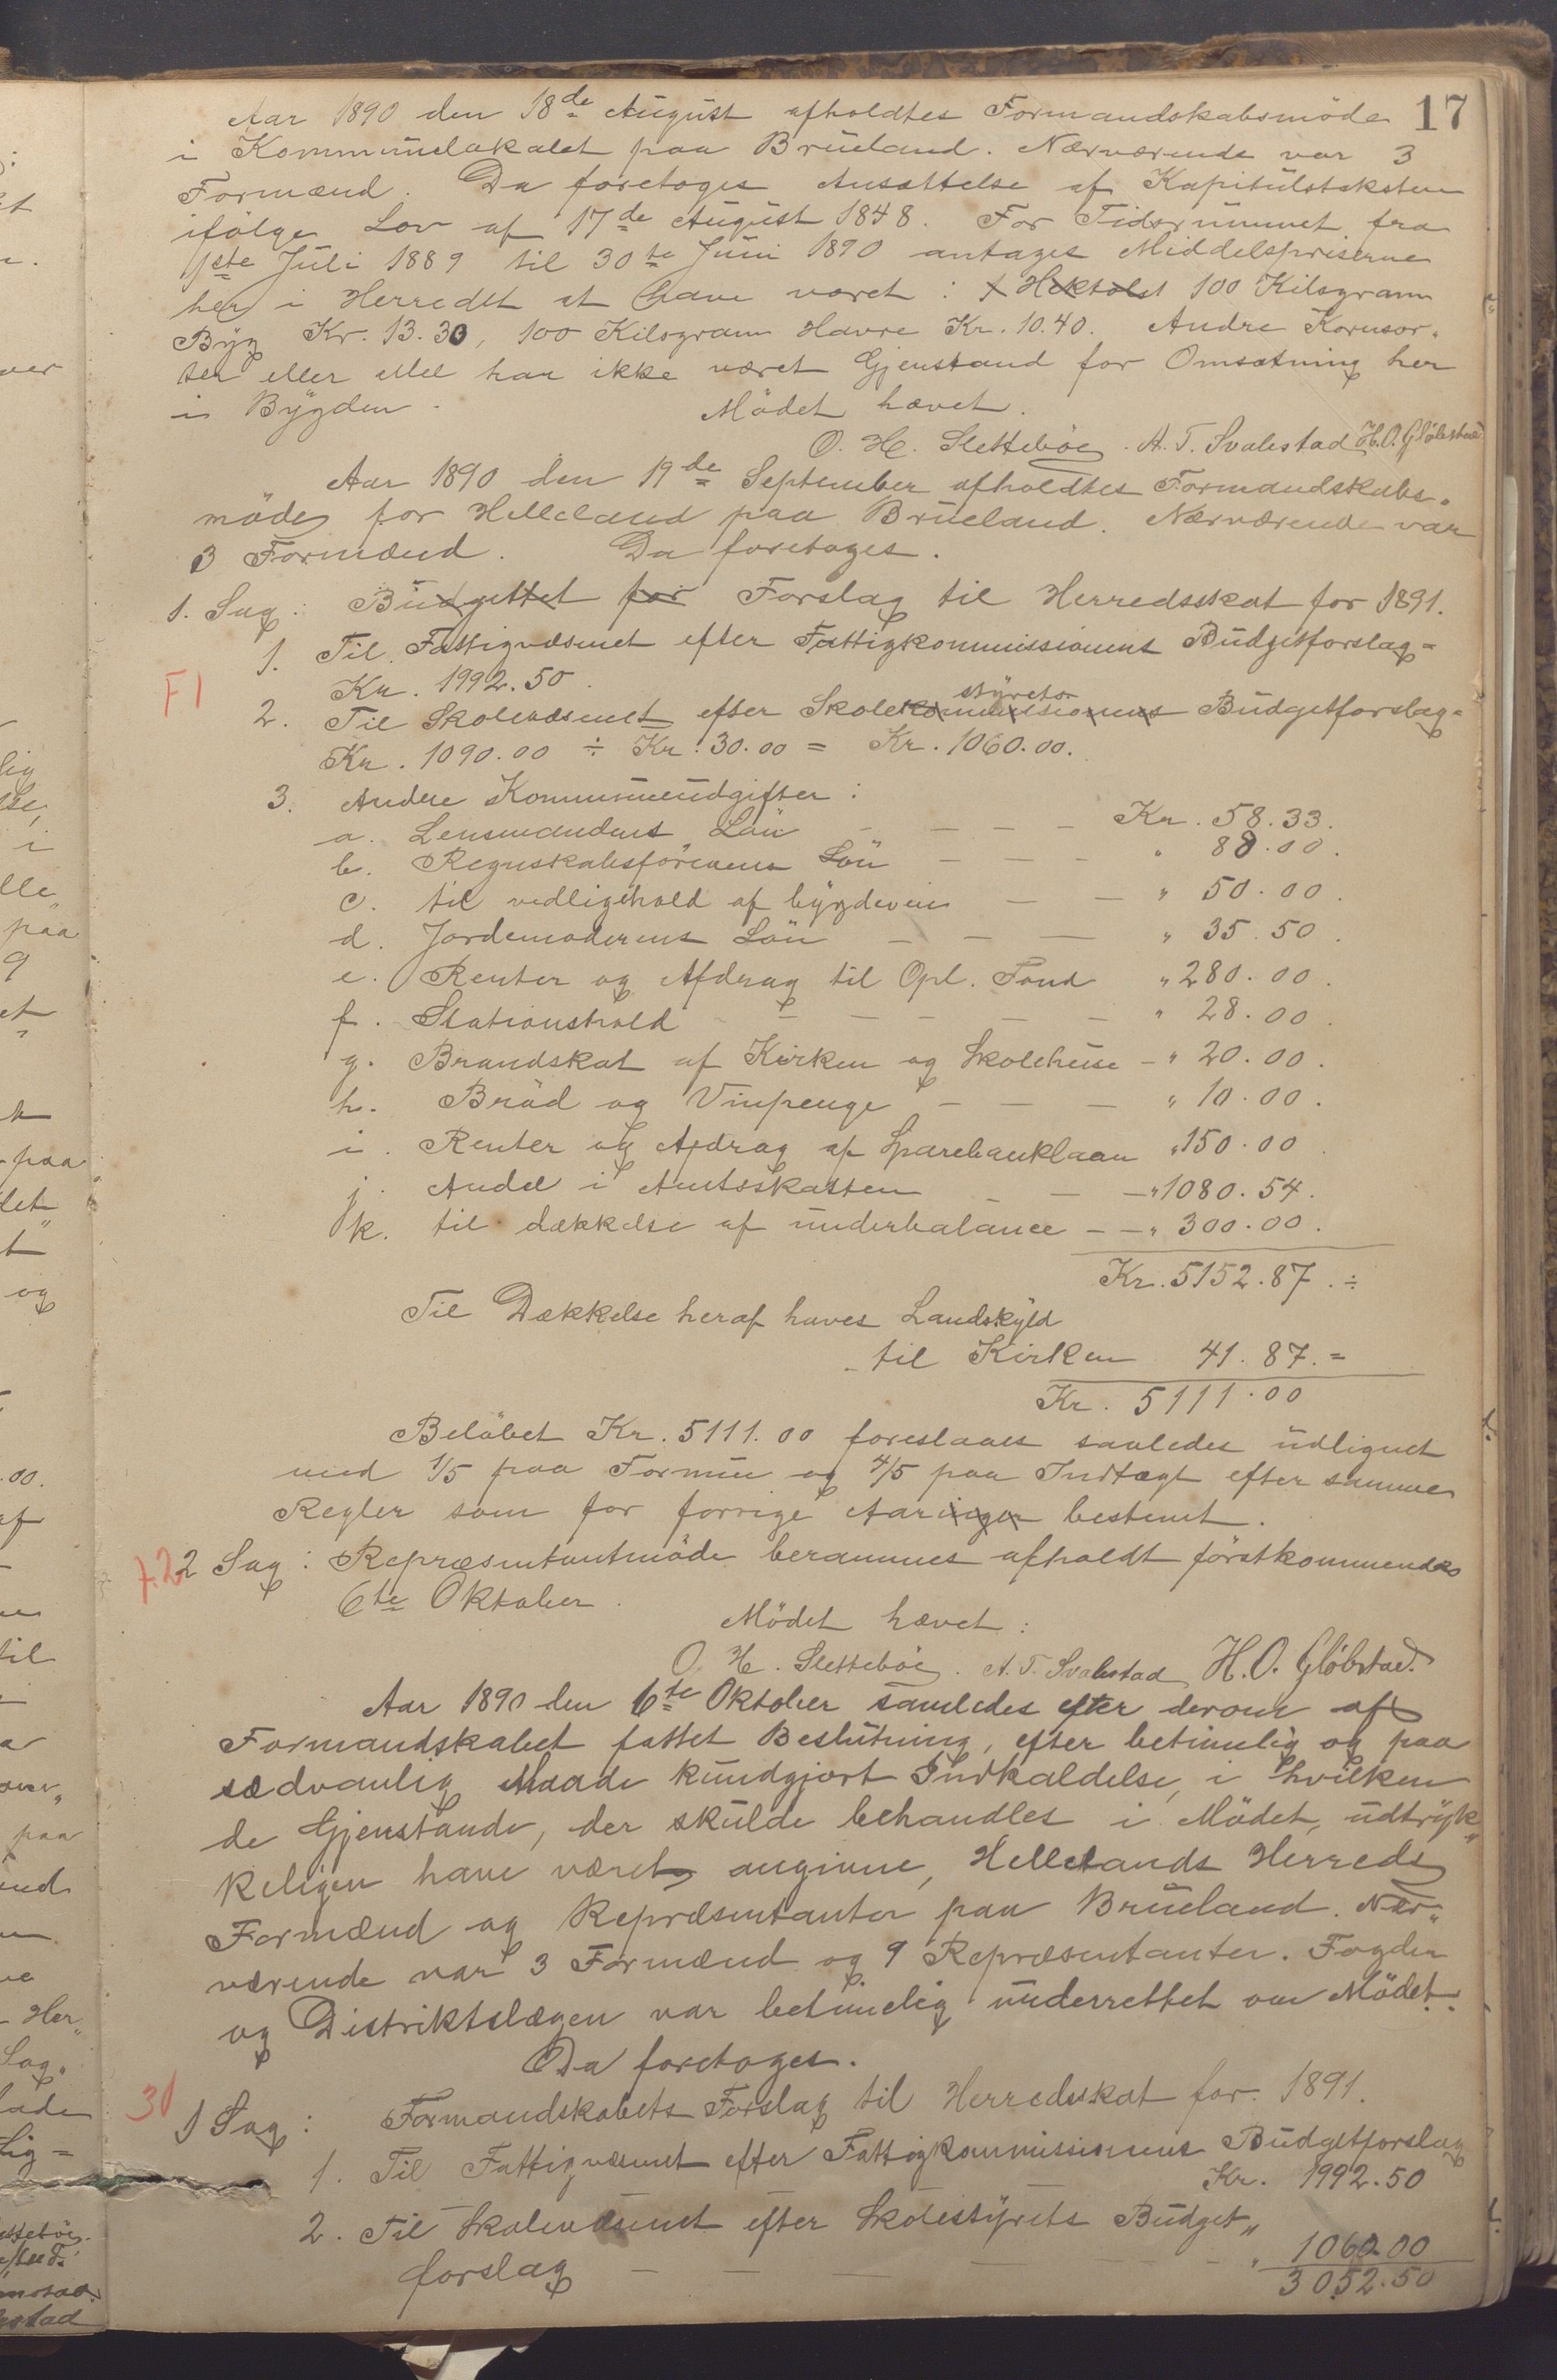 17
Aar 1890 den 18de August afholdtes Formandskabsmöde
i Kommunelokalet paa Brueland. Nærværende var 3
Formænd. Da foretoges Ansættelse af Kapitulstaksten
ifölge Lov af 17de August 1848. For Tidsrummet fra
1ste Juli 1889 til 30te Juni 1890 antages Middelspriserne
her i Herredet at have været: 1 Hektolit 100 Kilogram
Byg Kr. 13.30, 100 Kilogram Havre Kr. 10.40. Andre Kornsor-
ter eller Mel har ikke været Gjenstand for Omsætning her
i Bygden. Mödet hævet.
O. H. Sletteböe. A. T. Svalestad H. O. Glöbstad
Aar 1890 den 19de September afholdtes Formandskabs-
möde for Helleland paa Brueland. Nærværende var
3 Formænd. Da foretoges.
1. Sag: Budgettet for Forslag til Herredsskat for 1891.
1. Til Fattigvæsenet efter Fattigkommissionens Budgetforslag =
F1
Kr. 1992.50.
styrets
2. Til Skolevæsenet efter Skolekommissionens Budgetforslag =
Kr. 1090.00 ÷ Kr. 30.00 = Kr. 1060.00.
3. Andre Kommuneudgifter:
a. Lensmandens Lön — — — Kr. 58.33.
b. Regnskabsförerens Lön — — — " 88.00.
c. til vedligehold af bygdeveie — — " 50.00.
d. Jordemoderens Lön — — — " 35.50.
e. Renter og Afdrag til Opl. Fond " 280.00.
f. Skationshold — — — — — " 28.00.
g. Brandskat af Kirken og Skolehuse — " 20.00.
h. Bröd og Vinpenge — — — " 10.00.
i. Renter og Afdrag af Sparebanklaan " 150.00.
j. Andel i Amtsskatten — — — " 1080.54.
k. til dækkelse af underbalance — — " 300.00.
Kr. 5152.87. ÷
Til Dækkelse heraf haves Landskyld
til Kirken 41.87. =
Kr. 5111.00
Belöbet Kr. 5111.00 foreslaaes saaledes udlignet
med 1/5 paa Formue og 4/5 paa Indtægt efter samme
Regler som for forrige Aaringer bestemt.
F.2 2 Sag: Repræsentantmöde berammes afholdt förstkommende
6te Oktober.
Mödet hævet:
O. H. Sletteböe. A. T. Svalestad H. O. Glöbstad.
Aar 1890 den 6te Oktober samledes efter derom af
Formandskabet fattet Beslutning, efter betimelig og paa
sædvanlig Maade kundgjort Indkaldelse, i hvilken
de Gjenstande, der skulde behandles i Mödet, udtryk-
keligen have været angivne, Hellelands Herreds
Formænd og Repræsentanter paa Brueland. Nær-
værende var 3 Formænd og 9 Repræsentanter. Fogden
og Distriktslægen var betimelig underrettet om Mödet.
Da foretoges.
31
1 Sag: Formandskabets Forslag til Herredsskat for 1891.
1. Til Fattigvæsenet efter Fattigkommissionens Budgetforslag
Kr. 1992.50
2. Til Skolevæsenet efter Skolestyrets Budget-
forslag — — — — " 1060.00
3052.50